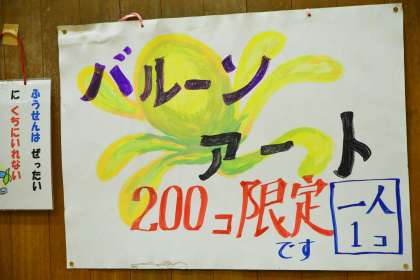 バルーン
アート
200コ限定
です
一人
1コ
ふうせんは ぜったい
に くちにいれない